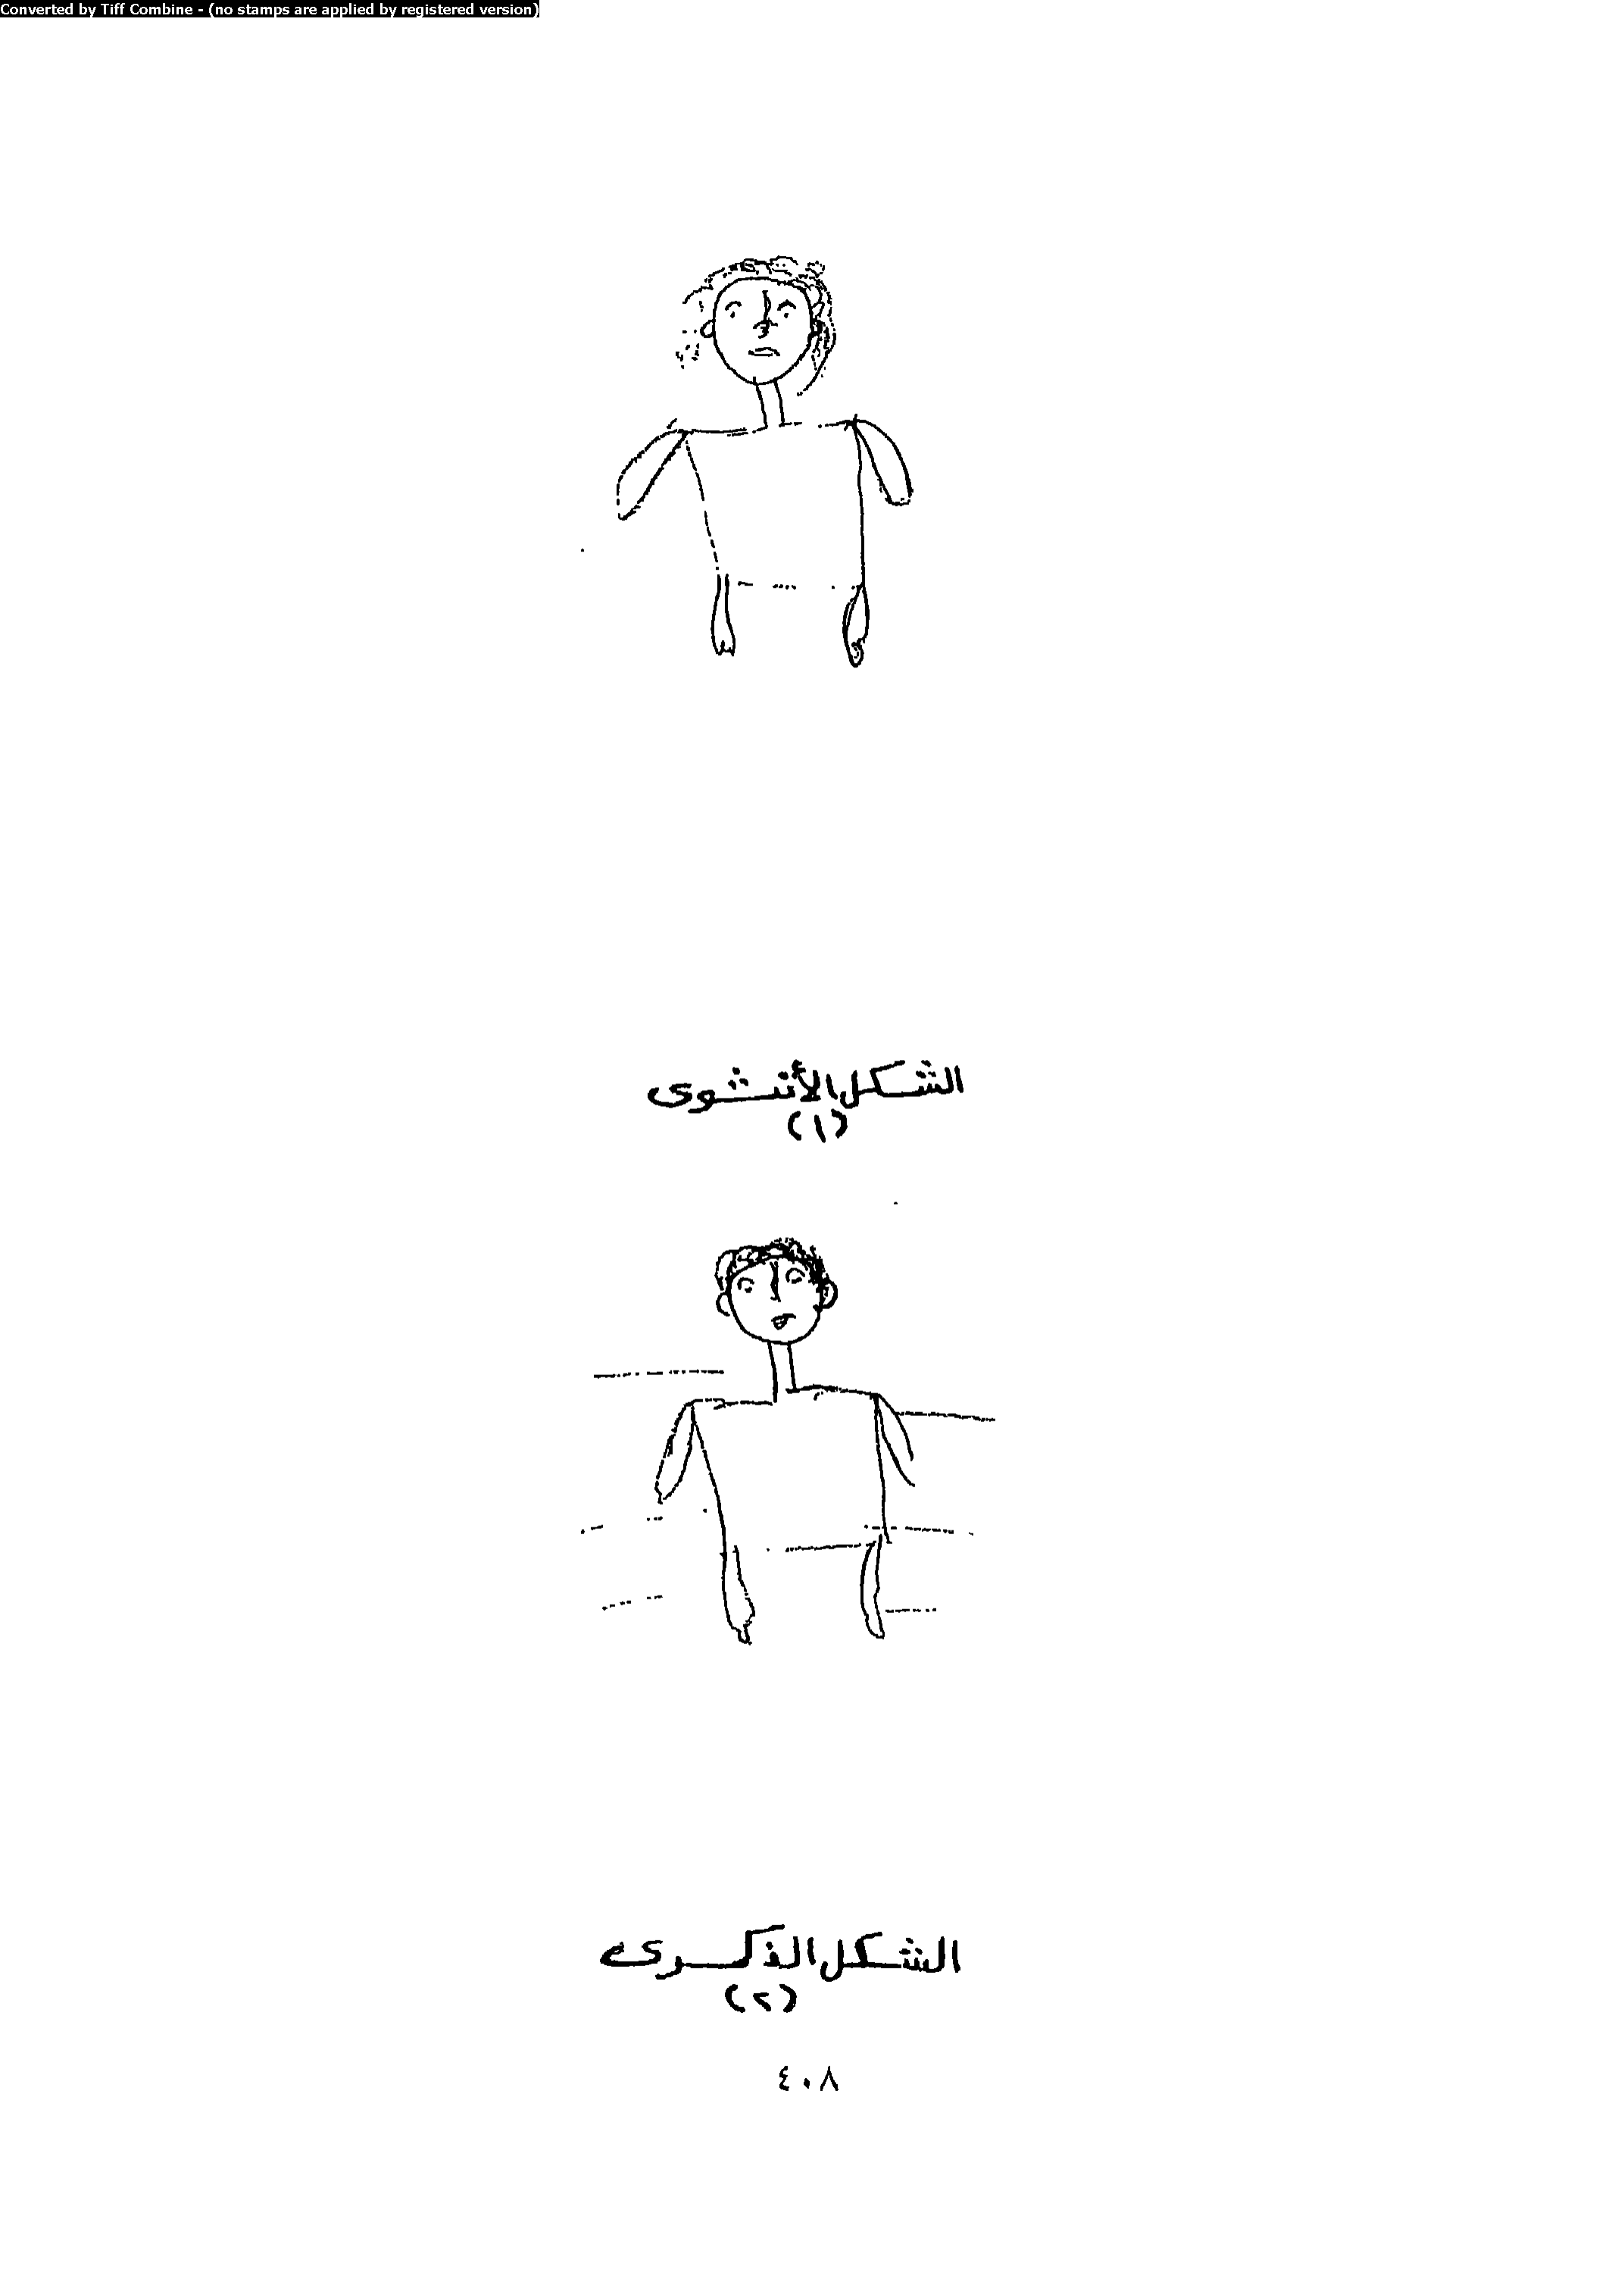 Converted by Tiff Combine - (no stamps are applied by registered version)
الشكل الأنثوى
(١)
الشكل الذكرى
(٢)
٤٠٨